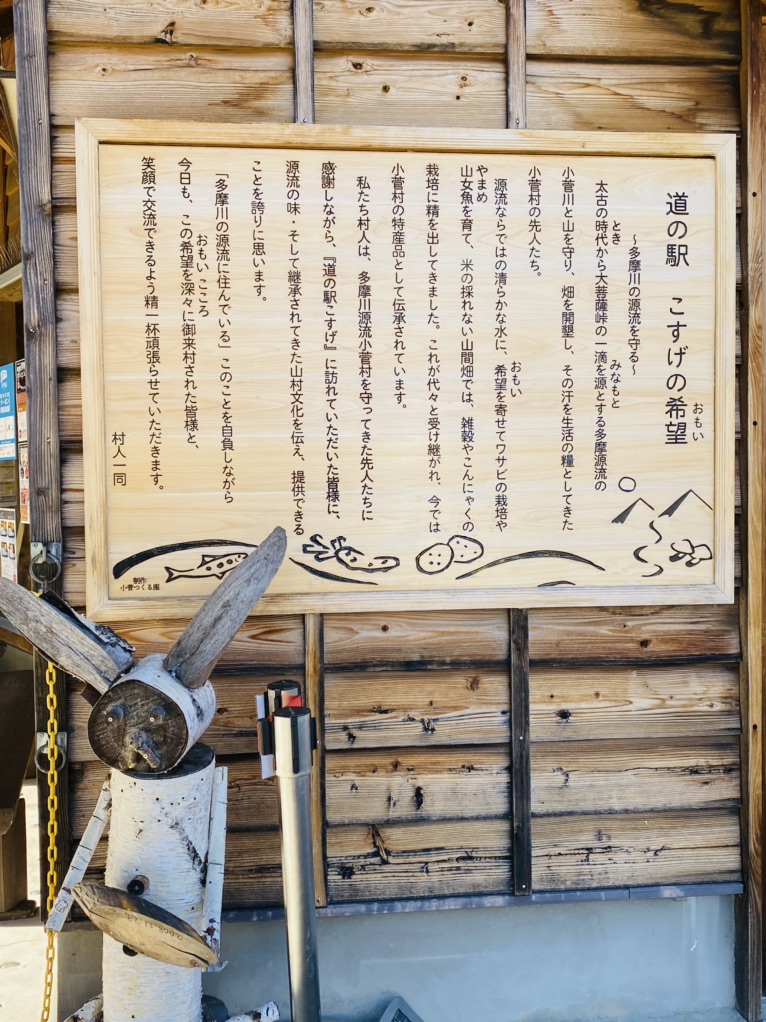 道の駅　こすげの希望
おもい
～多摩川の源流を守る～
太古の時代から大菩薩峠の一滴を源とする多摩源流の
とき
みなもと
小菅川と山を守り、畑を開墾し、その汗を生活の糧としてきた
小菅村の先人たち。
源流ならではの清らかな水に、希望を寄せてワサビの栽培や
おもい
山女魚を育て、米の採れない山間畑では、雑穀やこんにゃくの
やまめ
栽培に精を出してきました。これが代々と受け継がれ、今では
小菅村の特産品として伝承されています。
私たち村人は、多摩川源流小菅村を守ってきた先人たちに
感謝しながら、『道の駅こすげ』に訪れていただいた皆様に、
源流の味・そして継承されてきた山村文化を伝え、提供できる
ことを誇りに思います。
「多摩川の源流に住んでいる」このことを自負しながら
今日も、この希望を深々に御来村された皆様と、
おもい こころ
笑顔で交流できるよう精一杯頑張らせていただきます。
村人一同
制作
小菅つくる座